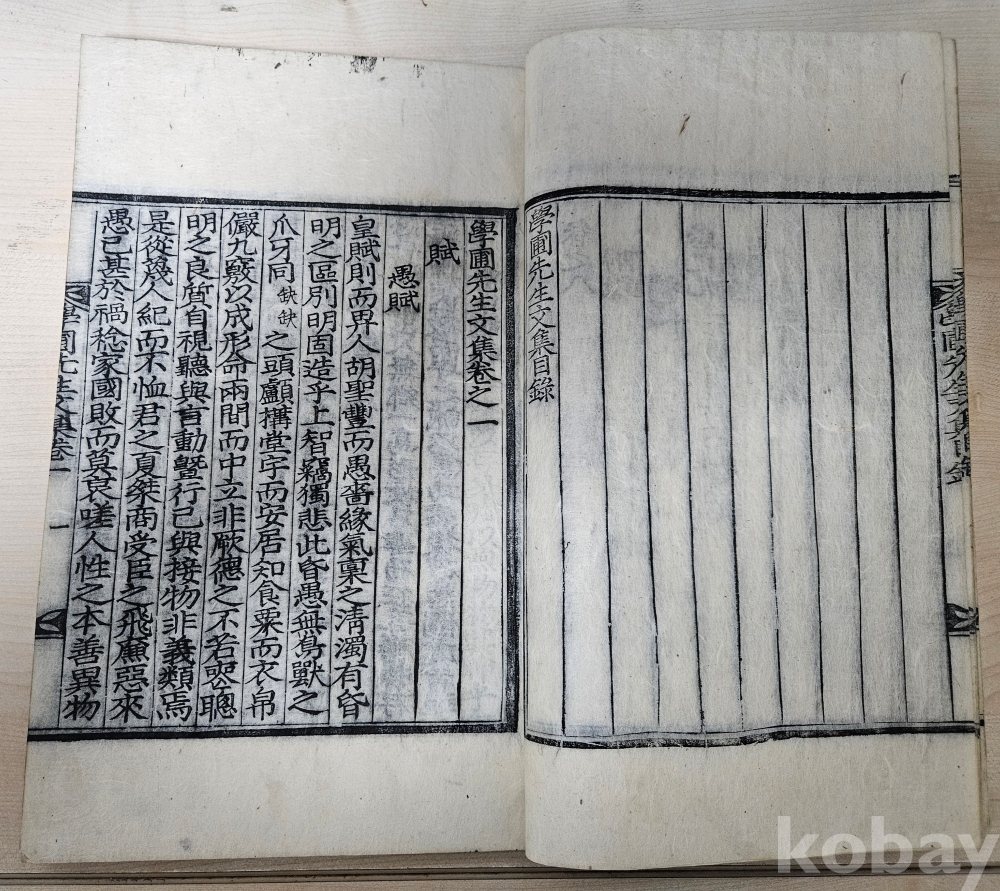 學圃先生文集目錄
學圃先生文集目錄
學圃先生文集卷之一
賦
愚賦
皇賦則而畀人胡聖豐而愚嗇緣氣稟之淸濁有昏
明之區別明固造乎上智竊獨悲此昏愚無鳥獸之
爪牙同缺缺之頭顱搆堂宇而安居知食粟而衣帛
儼九竅以成形命兩間而中立非厥德之不若聰
明之良質自視聽與言動曁行己與接物非義類焉
是從蔑人紀而不恤君之夏桀商受臣之飛廉惡來
愚已甚於禍稔家國敗而莫哀嗟人性之本善異物
學圃先生文集卷一 一
kobay